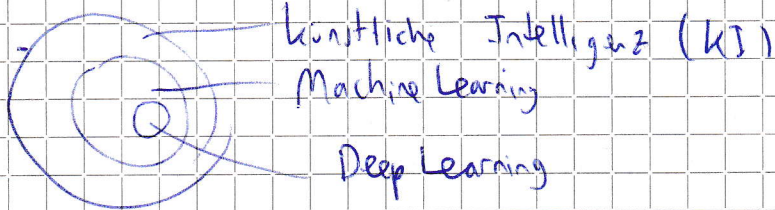 Künstliche Intelligenz (KI)
Machine Learning
Deep Learning